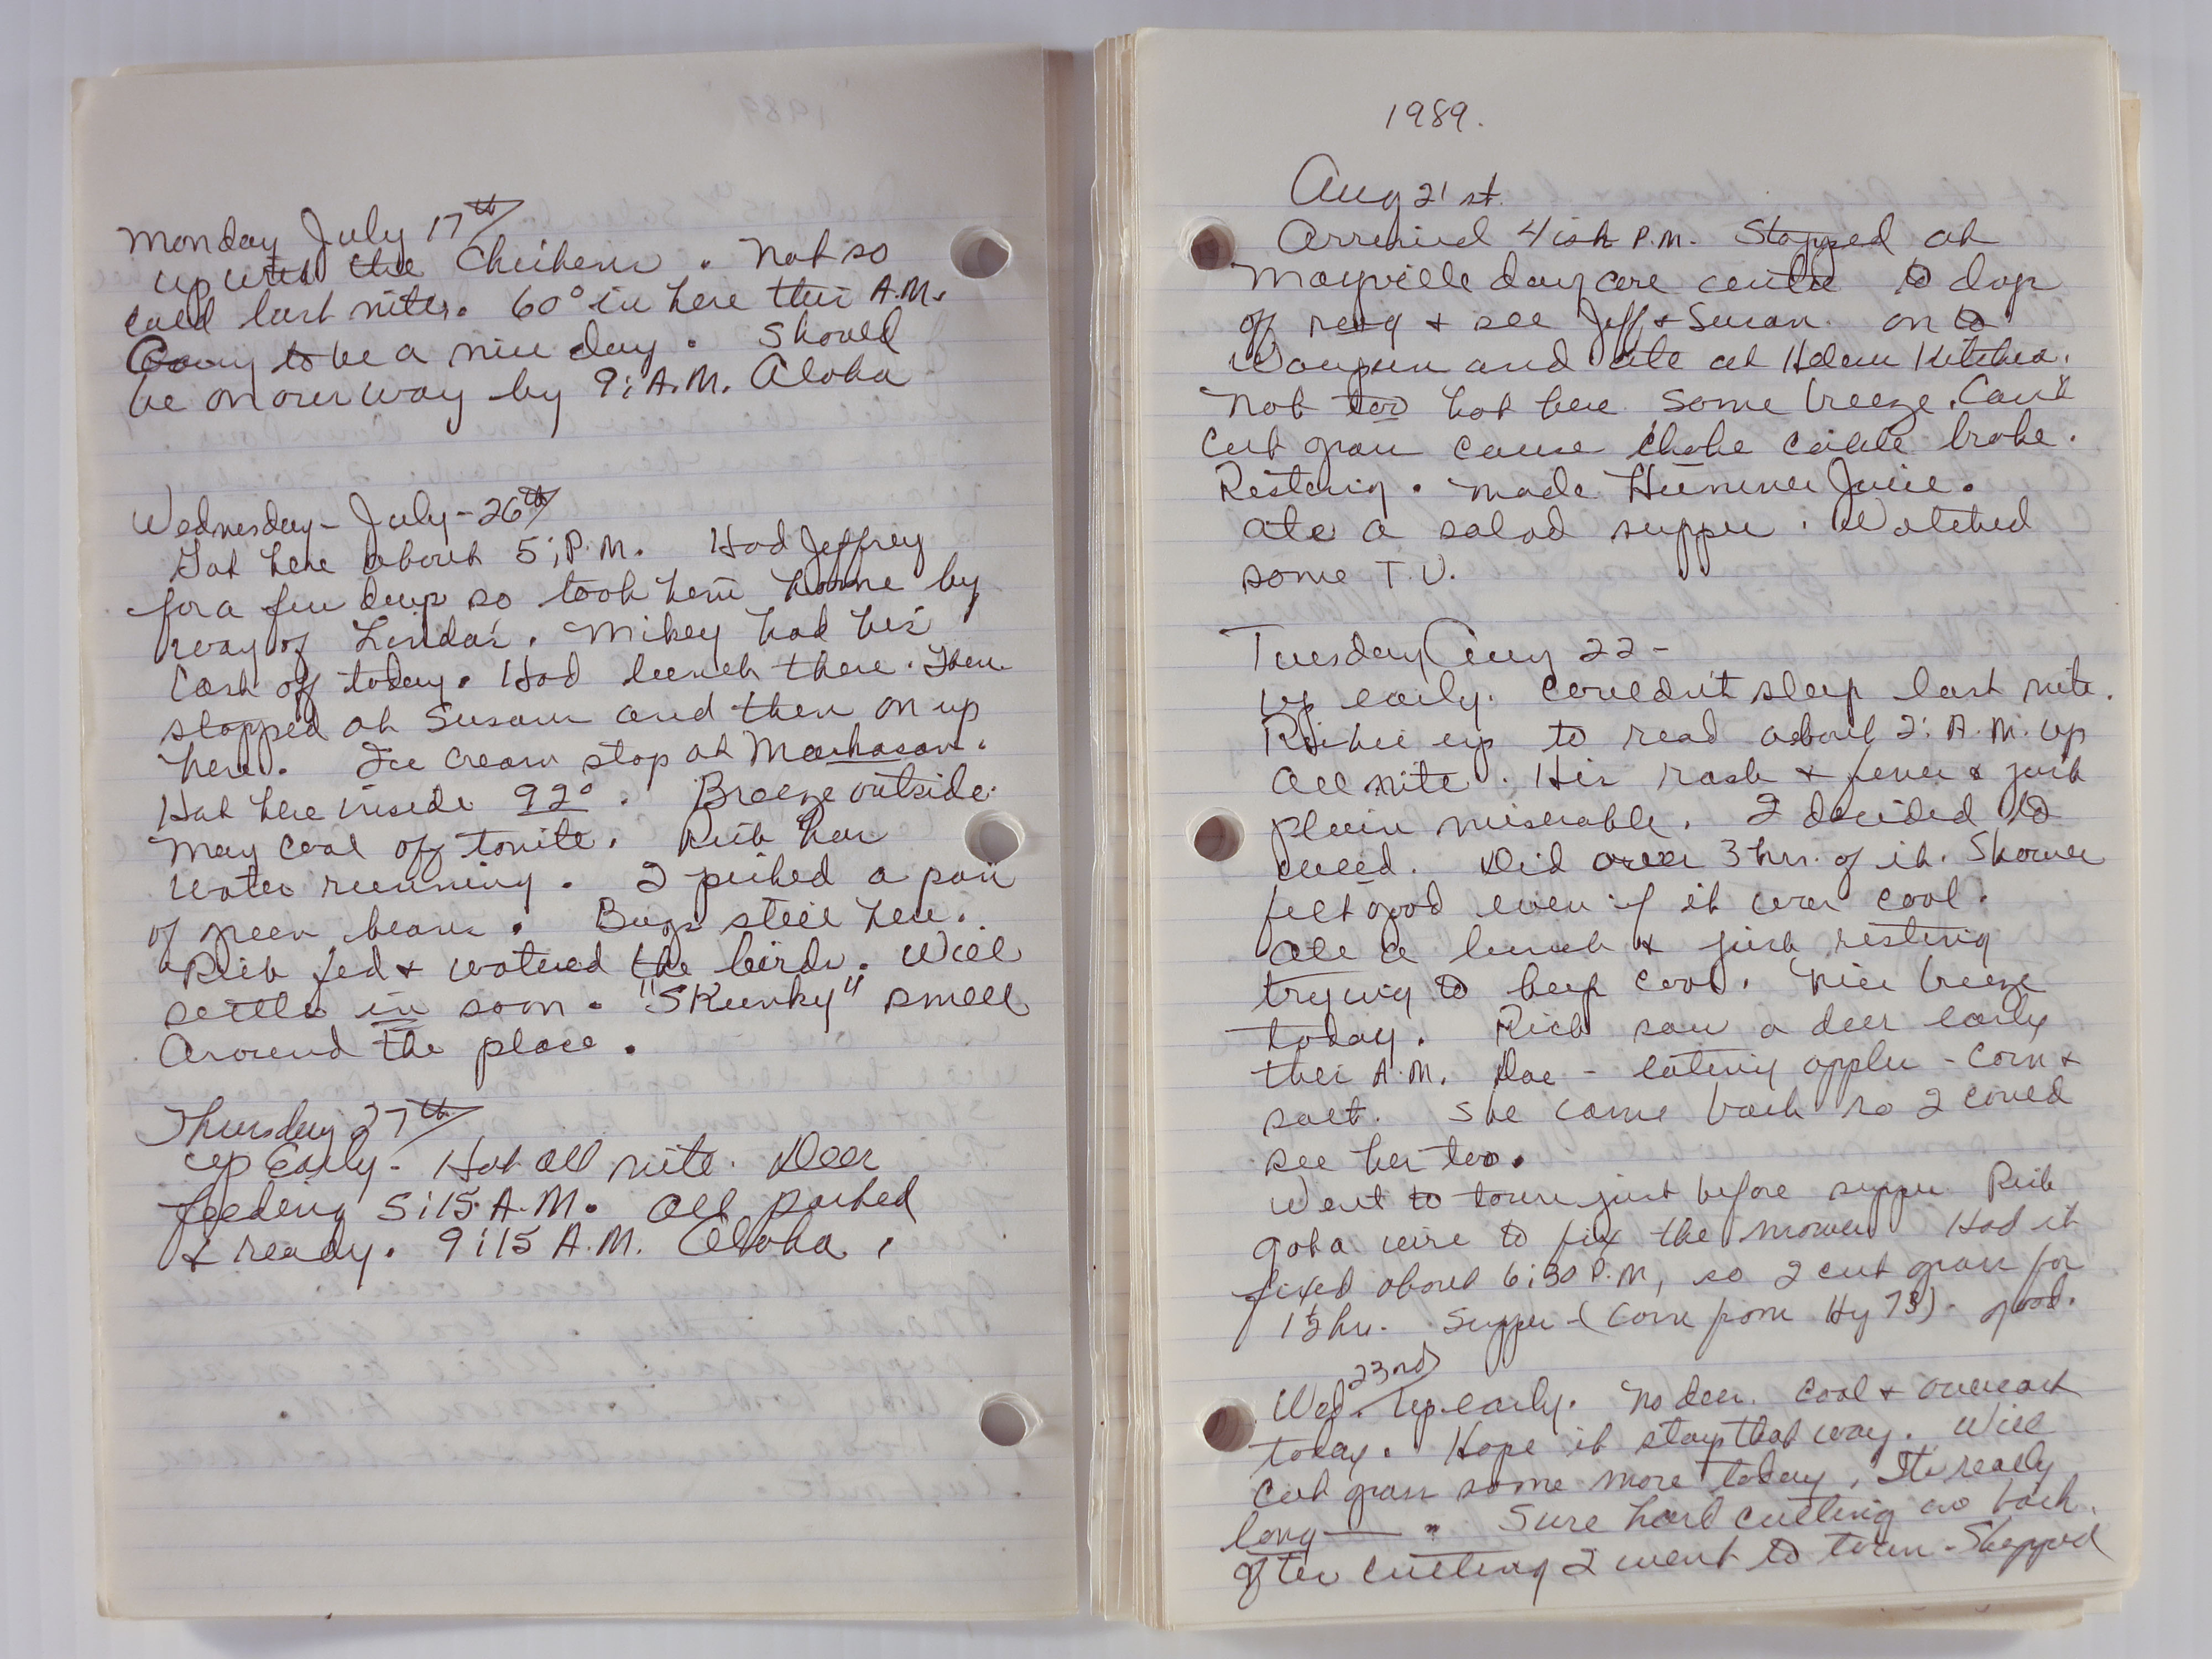 Monday July 17th
up with the Chickens. Not so
cold last nite. 60° in here this A.M.
Going to be a nice day. Should
be on our way by 9: A.M. Aloha
Wednesday - July - 26th
Got here about 5: P.M. Had Jeffrey
for a few days so took him home by
way of Linda's. Mikey had his
Cast off today. Had lunch there. Then
stopped at Susans and then on up
here. Ice cream stop at Markasan.
Hot here inside 92°. Breeze outside.
May cool off tonite. Rich has
water running. I picked a pan
of green beans. Bugs still here.
Rich fed & watered the birds. Will
settle in soon. "Skunky" smell
Around the place.
Thursday 27th
up Early - Hot all nite. Deer
feeding 5:15 A.M. All packed
& ready. 9:15 A.M. Aloha.
1989.
Aug 21st.
Arrived 4ish P.M. Stopped at
Mayville day care center to drop
off & see Jeff & Susan. on to
Waupun and ate at Helen Kitchen.
Not too hot here. Some breeze. Can't
Cut grass cause choke cable broke.
Resting. Made Hummer Juice.
ate a salad supper. Watched
some T.V.
Tuesday Aug 22 -
up early. Couldn't sleep last nite.
Richie up to read about 2: A.M. up
all nite. His rash & fever & just
plain miserable. I decided to
weed. Did over 3 hrs. of it. Shower
felt good even if it was cool.
Ate a lunch & just resting
trying to keep cool. Nice breeze
today. Rich saw a deer early
this A.M. Doe - eating apples - Corn &
salt. She came back so I could
see her too.
Went to town just before supper Rich
got a wire to fix the mower Had it
fixed about 6:30 P.M, so I cut grass for
1½ hr. Supper - (Corn from Hy 73) - good.
Wed. 23rd Up early. No deer. Cool & overcast
today. Hope it stays that way. Will
Cut grass some more today. It's really
long — . Sure hard cutting in back.
After cutting I went to town - Shopped